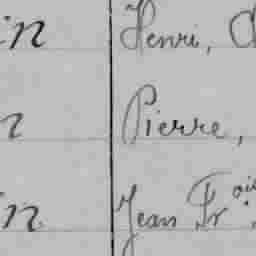 in Henri, C
n Pierre,
in Jean Fr.ois